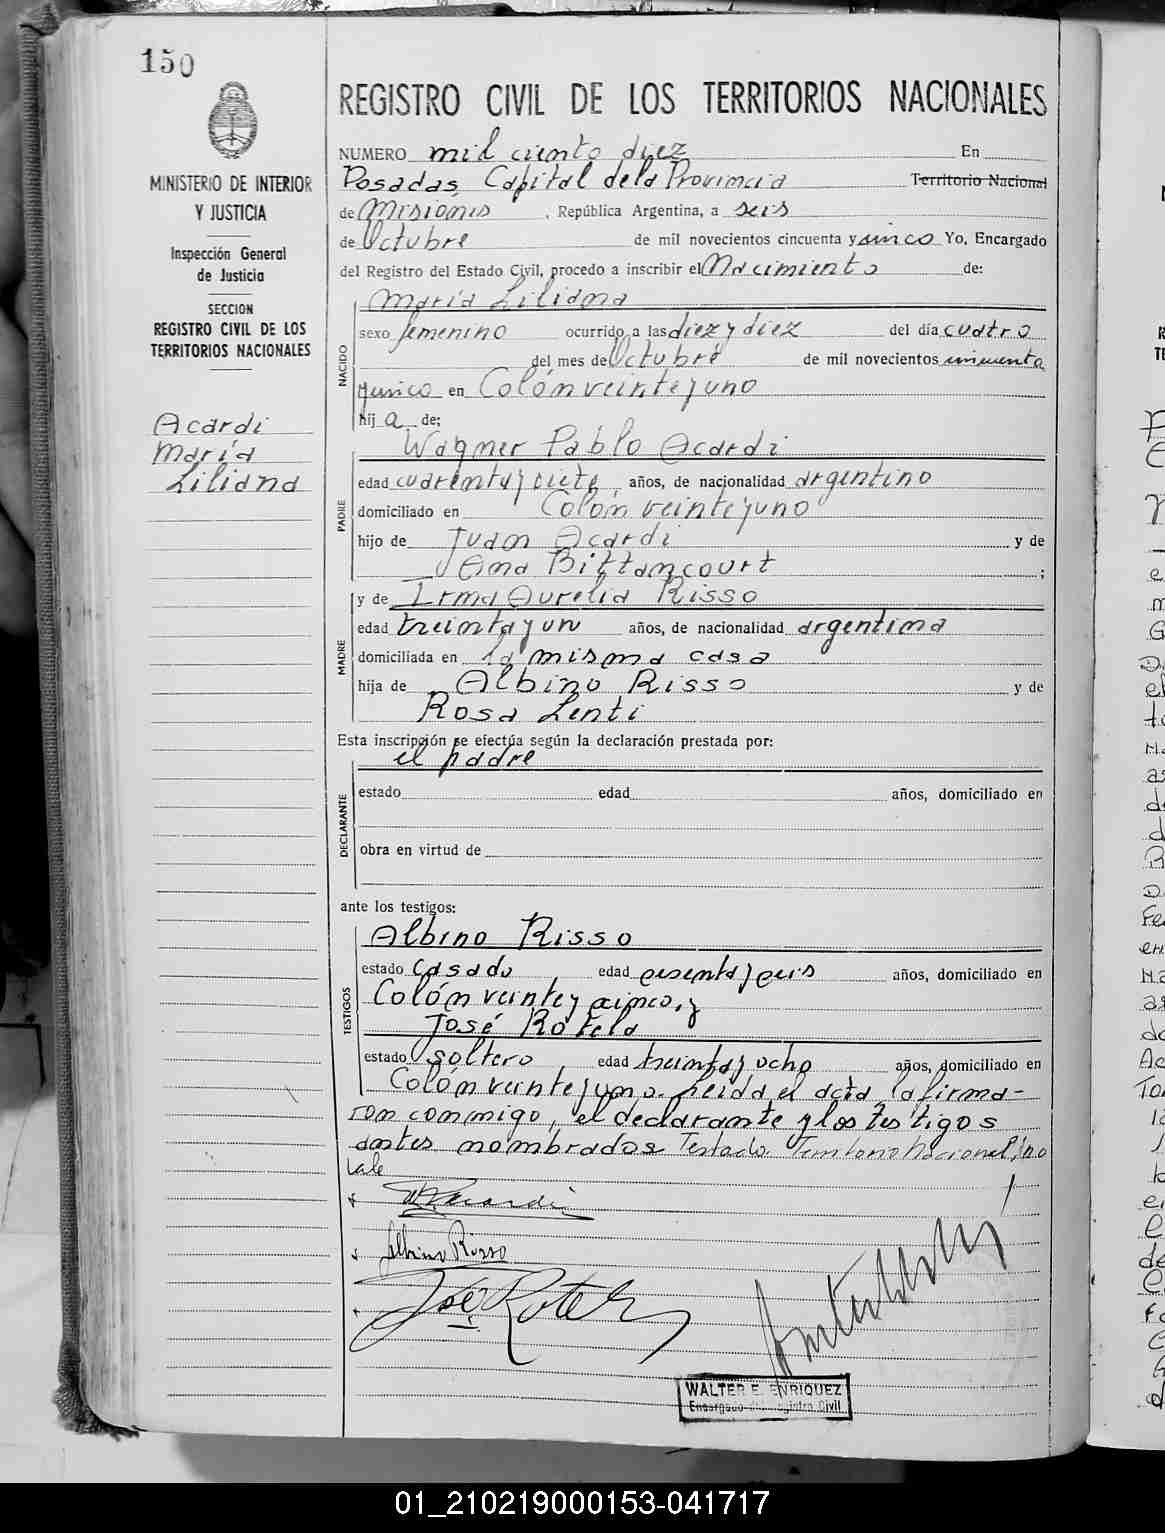 150
MINISTERIO DE INTERIOR
Y JUSTICIA
Inspección General
de Justicia
SECCION
REGISTRO CIVIL DE LOS
TERRITORIOS NACIONALES
Acardi
María
Liliana
REGISTRO CIVIL DE LOS TERRITORIOS NACIONALES
NUMERO mil ciento diez En
Posadas, Capital de la Provincia Territorio Nacional
de Misiones, República Argentina, a seis
de Octubre de mil novecientos cincuenta y cinco Yo, Encargado
del Registro del Estado Civil, procedo a inscribir el Nacimiento de:
NACIDO
María Liliana
sexo femenino ocurrido a las diez y diez del día cuatro
del mes de Octubre de mil novecientos cincuenta
y cinco en Colón veinte y uno
hij a de:
PADRE
Wagner Pablo Acardi
edad cuarenta y siete, años, de nacionalidad argentino
domiciliado en Colón veinte y uno
hijo de Juan Acardi y de
Ana Bittancourt ;
MADRE
y de Irma Aurelia Risso
edad treinta y un años, de nacionalidad argentina
domiciliada en la misma casa
hija de Albino Risso y de
Rosa Lenti
Esta inscripción se efectúa según la declaración prestada por:
DECLARANTE
el padre
estado edad años, domiciliado en
obra en virtud de
ante los testigos:
TESTIGOS
Albino Risso
estado casado edad sesenta y seis años, domiciliado en
Colón veinte y cinco, y
José Rotela
estado soltero edad treinta y ocho años, domiciliado en
Colón veinte y uno. Leida el acta, la firma-
ron conmigo, el declarante y los testigos
antes nombrados Testado: Territorio Nacional: no
vale
Albino Risso
José Rotela
WALTER E. ENRIQUEZ
Encargado del Registro Civil
01_210219000153-041717